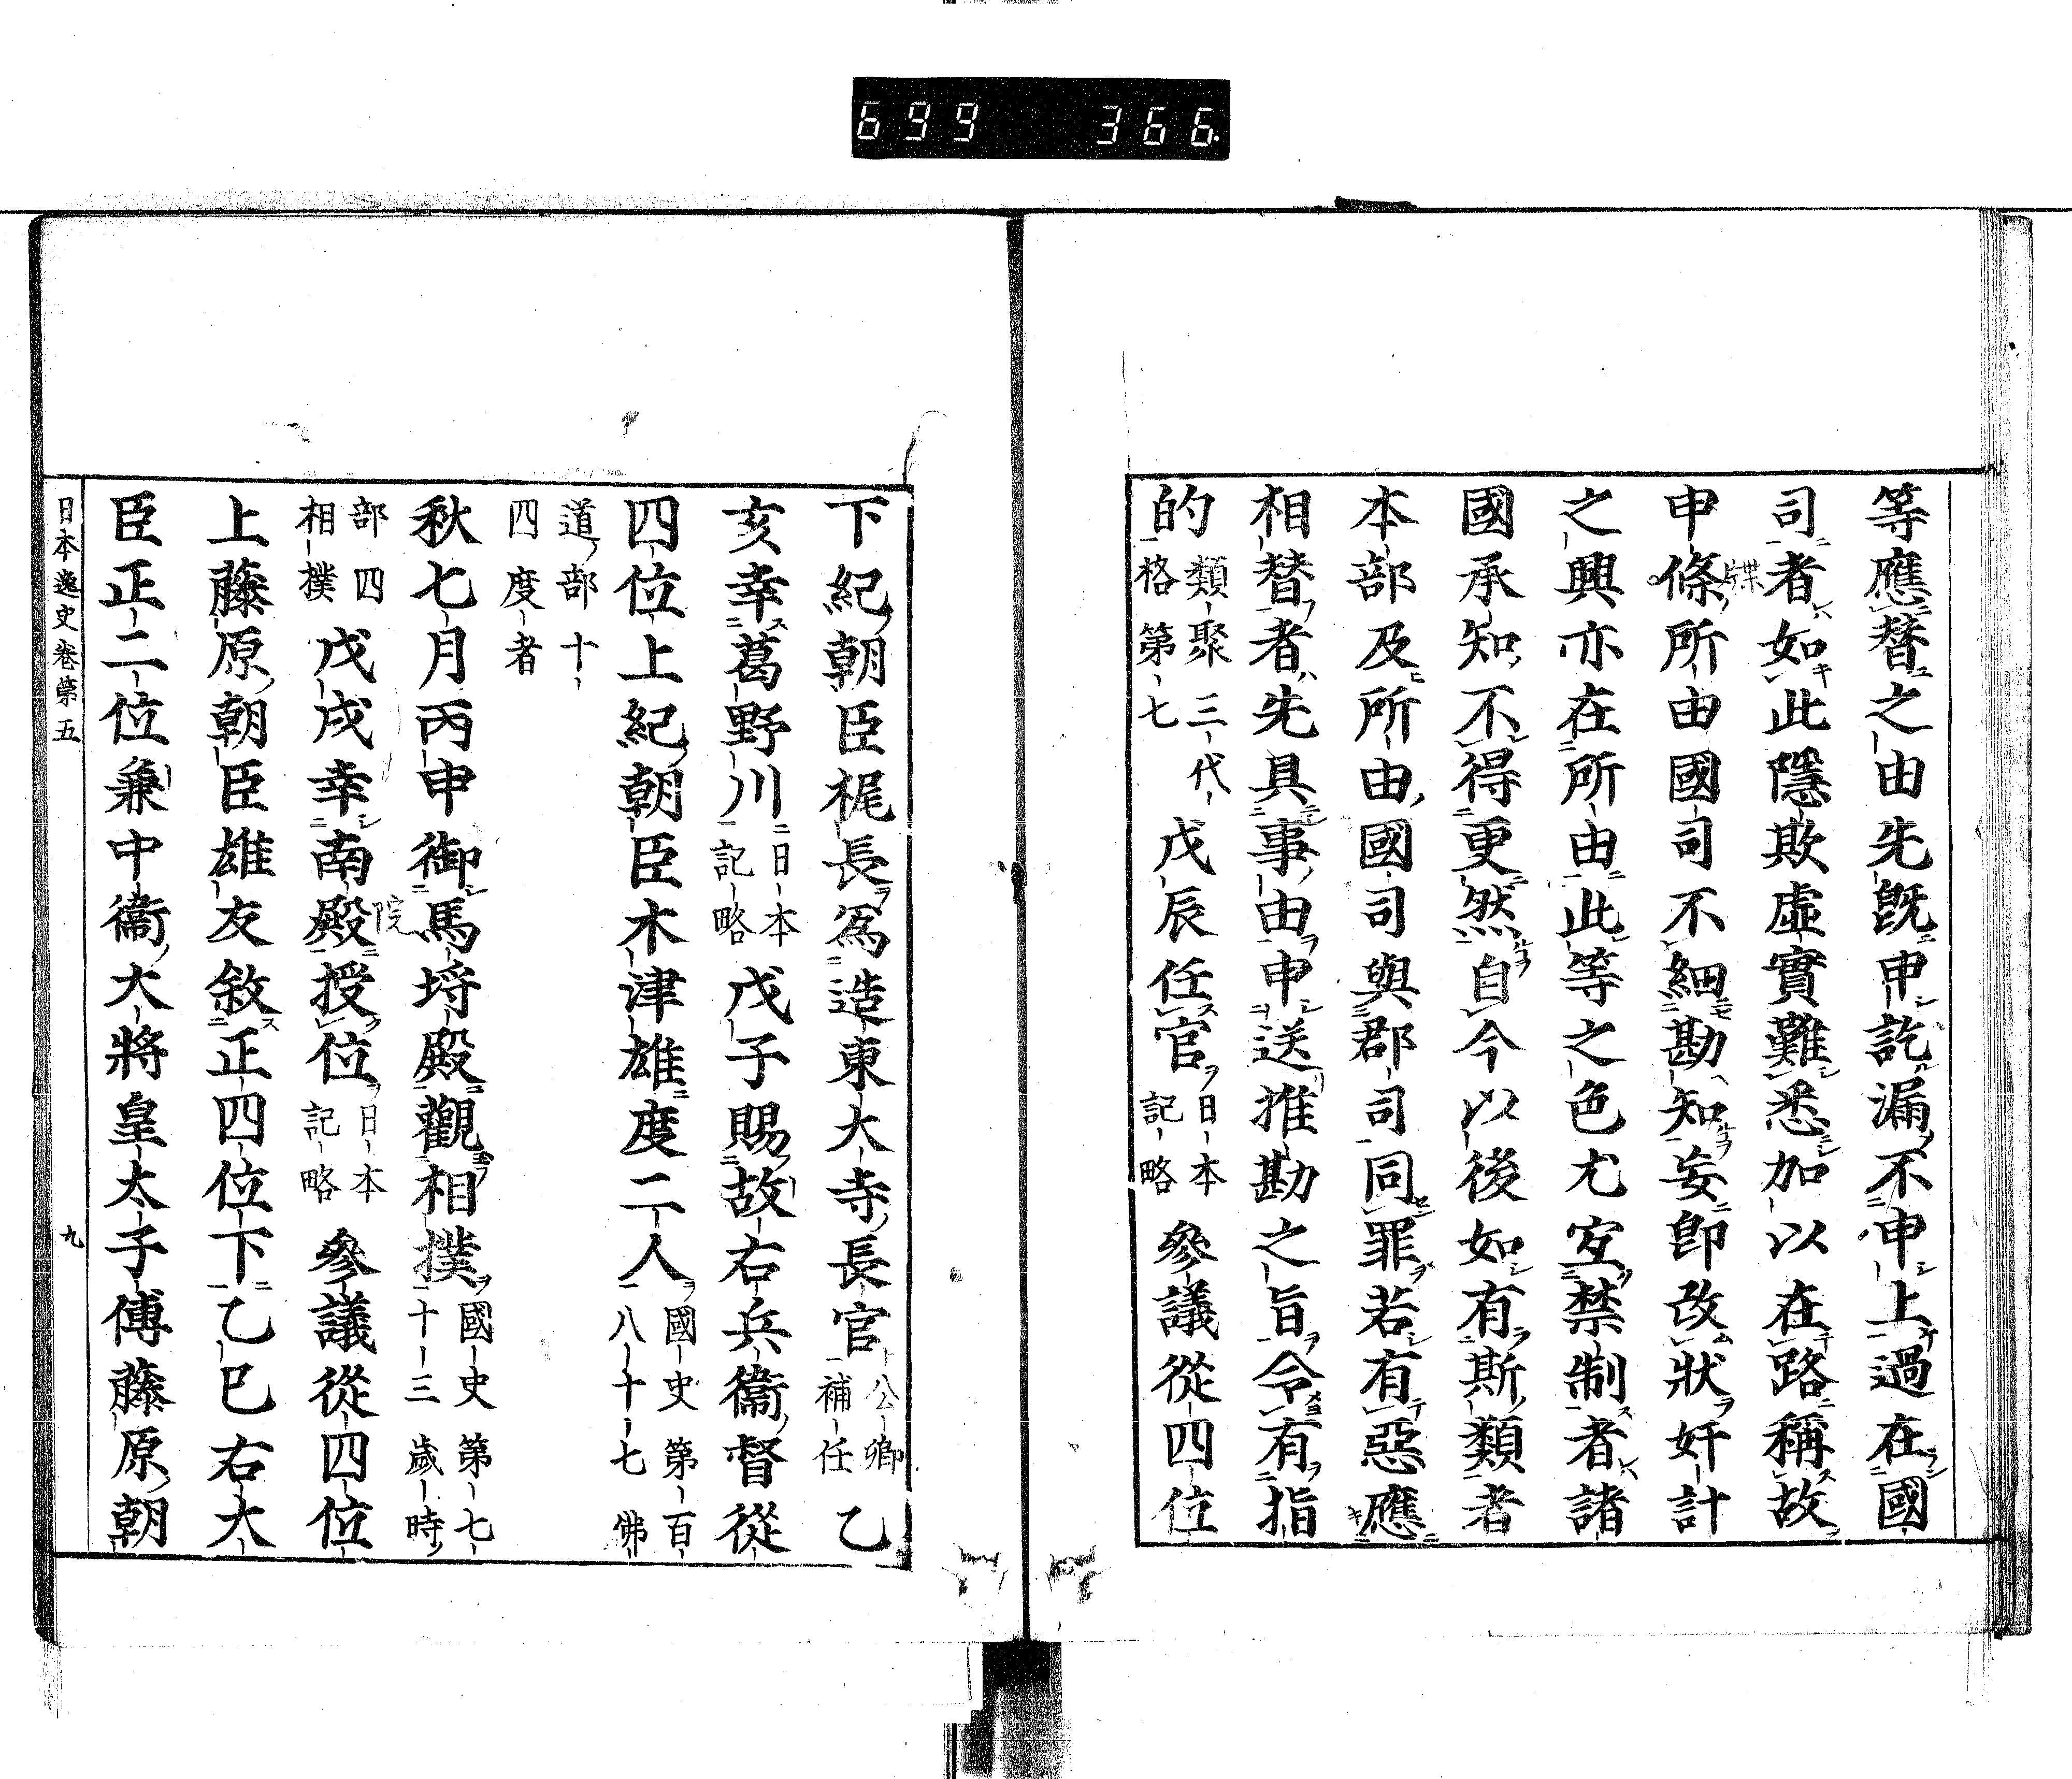 699 366
等應替之由先旣申訖漏不申上過在國
司者如此隱欺虛實難悉加以在路稱故
申條所由國司不細勘知妄卽改狀奸計
之興亦在所由此等之色尤宜禁制者諸
國承知不得更然自今以後如有斯類者
本部及所由國司與郡司同罪若有惡應
相替者先具事由申送推勘之旨令有指
的類聚三代格第七 戊辰任官日本記略 參議從四位
下紀朝臣梶長爲造東大寺長官公卿補任 乙
亥幸葛野川日本記略 戊子賜故右兵衞督從
四位上紀朝臣木津雄度二人國史第百八十七佛
道部十四度者
秋七月丙申御馬埒殿觀相撲國史第七十三歲時
部四相撲 戊戌幸南殿授位日本記略 參議從四位
上藤原朝臣雄友敘正四位下乙巳右大
臣正二位兼中衞大將皇太子傅藤原朝
日本逸史卷第五 九